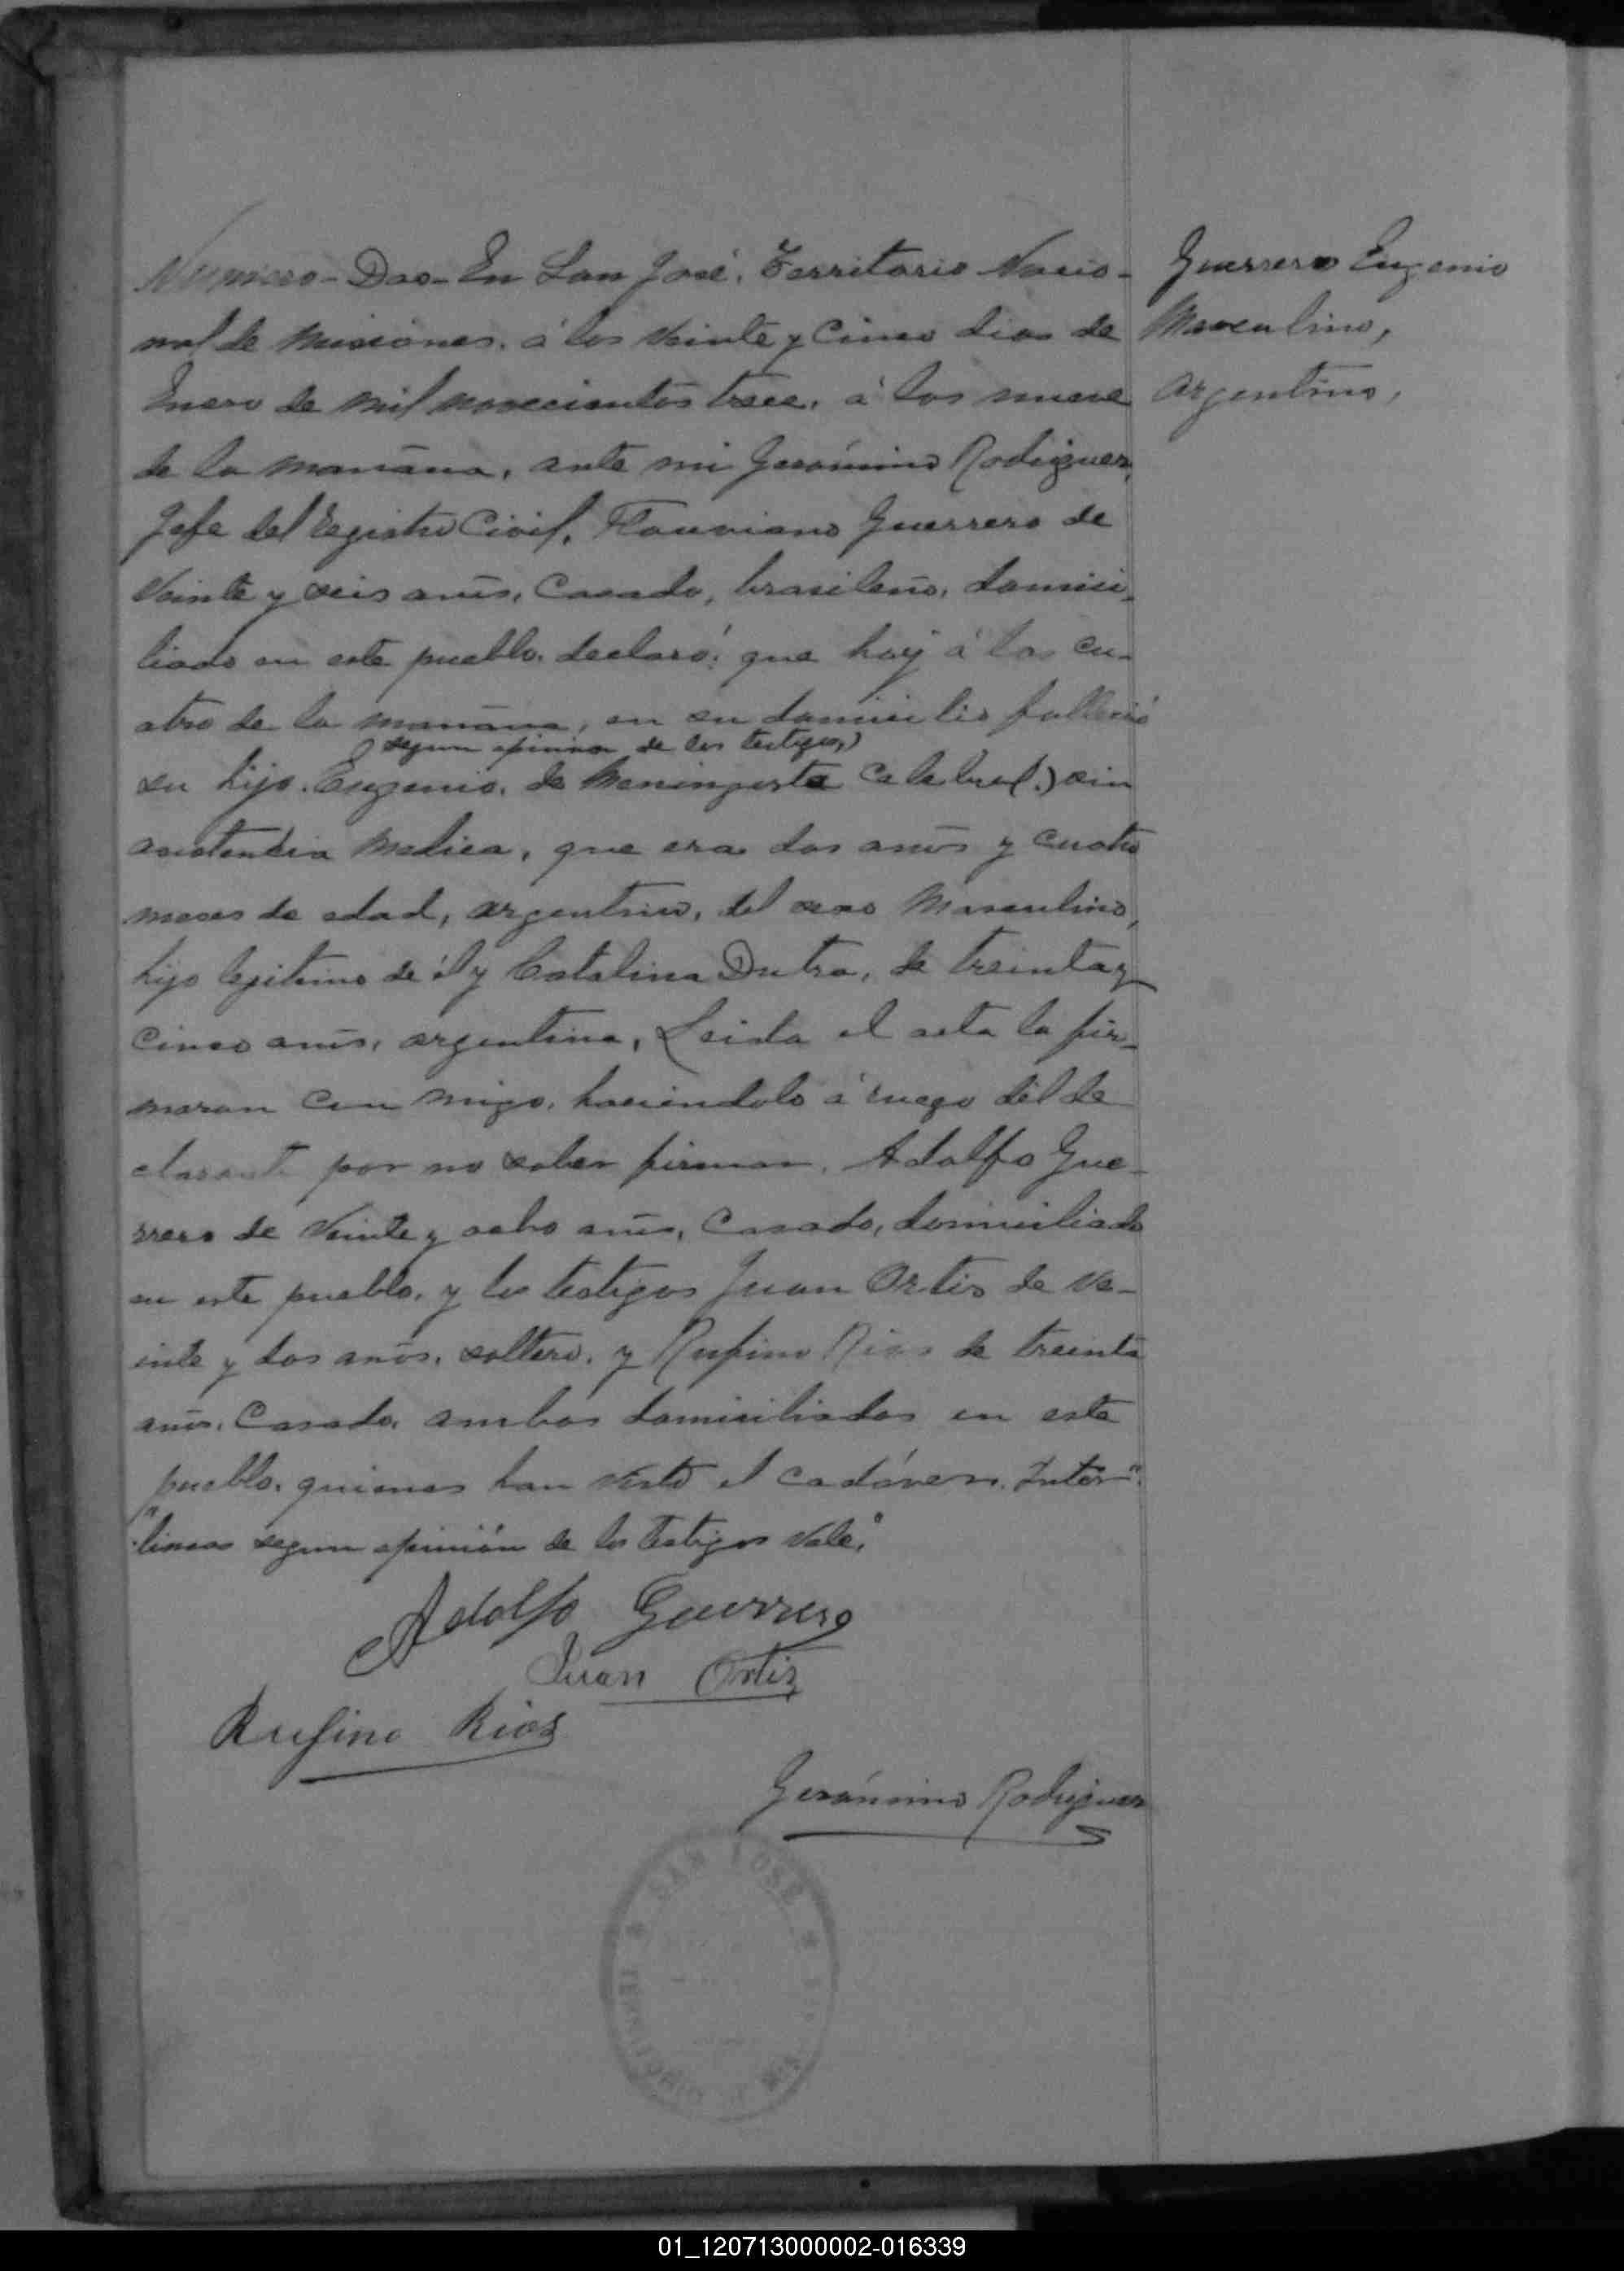 Numero - Dos - En San José, Territorio Nacio-
nal de Misiones, á los veinte y cinco dias de
Enero de mil novecientos trece, á las nueve
de la mañana, ante mi Gerónimo Rodriguez,
Jefe del Registro Civil, Flauviano Guerrero de
veinte y seis años, casado, brasileño, domici-
liado en este pueblo, declaró: que hoy á las cu-
atro de la mañana, en su domicilio falleció
(segun opinion de los testigos,)
su hijo Eugenio, de Meningesta Celebral.) sin
asistencia medica, que era dos años y cuatro
meses de edad, argentino, del sexo Masculino,
hijo legitimo de él y Catalina Dutra, de treinta y
cinco años, argentina, Leida el acta la fir-
maron con migo, haciendolo á ruego dél de
clarante por no saber firmar, Adolfo Gue-
rrero de veinte y ocho años, casado, domiciliado
en este pueblo, y los testigos Juan Ortis de ve-
inte y dos años, soltero, y Rufino Rios de treinta
años, casado, ambos domiciliados en este
pueblo, quienes han visto el cadáver. Inter"
"lineas segun opinión de los testigos vale."
Adolfo Guerrero
Juan Ortiz
Rufino Rios
Gerónimo Rodriguez
Guerrero Eugenio
Masculino,
argentino,
SAN JOSE
TERRITORIO
01_120713000002-016339